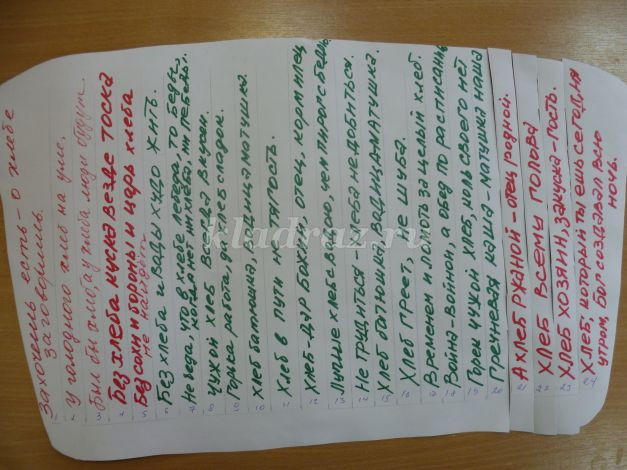 1 Захочешь есть - о хлебе
заговоришь.
2 У голодного хлеб на уме.
3 Был бы хлеб а у хлеба люди будут.
4 Без хлеба куска везде тоска
5 Без сохи и бороны и царь хлеба
не найдёт
6 Без хлеба и вады худо жить.
7 Не беда, что в хлебе лебеда, то беды,
когда нет ни хлеба, ни лебеды.
8 Чужой хлеб всегда вкусен.
9 Горька работа, да хлеб сладок.
10 Хлеб батюшка, водица матушка.
11 Хлеб в пути не тягость.
12 Хлеб-дар Божий, отец, кормилец
13 Лучше хлеб с водою, чем пирог с бедою
14 Не трудиться - хлеба не добиться.
15 Хлеб батюшка, водица-матушка.
16 Хлеб греет, не шуба.
17 Времен и ломоть за целый хлеб.
18 Война-войной, а обед по расписанию
19 Горек чужой хлеб, коль своего нет
20 Гречневая каша - матушка наша
21 А хлеб ржаной - отец родной.
22 Хлеб всему голова
23 Хлеб хозяин, закуска-гость.
24 Хлеб, который ты ешь сегодня
утром, Бог создавал всю
ночь.
kladraz.ru